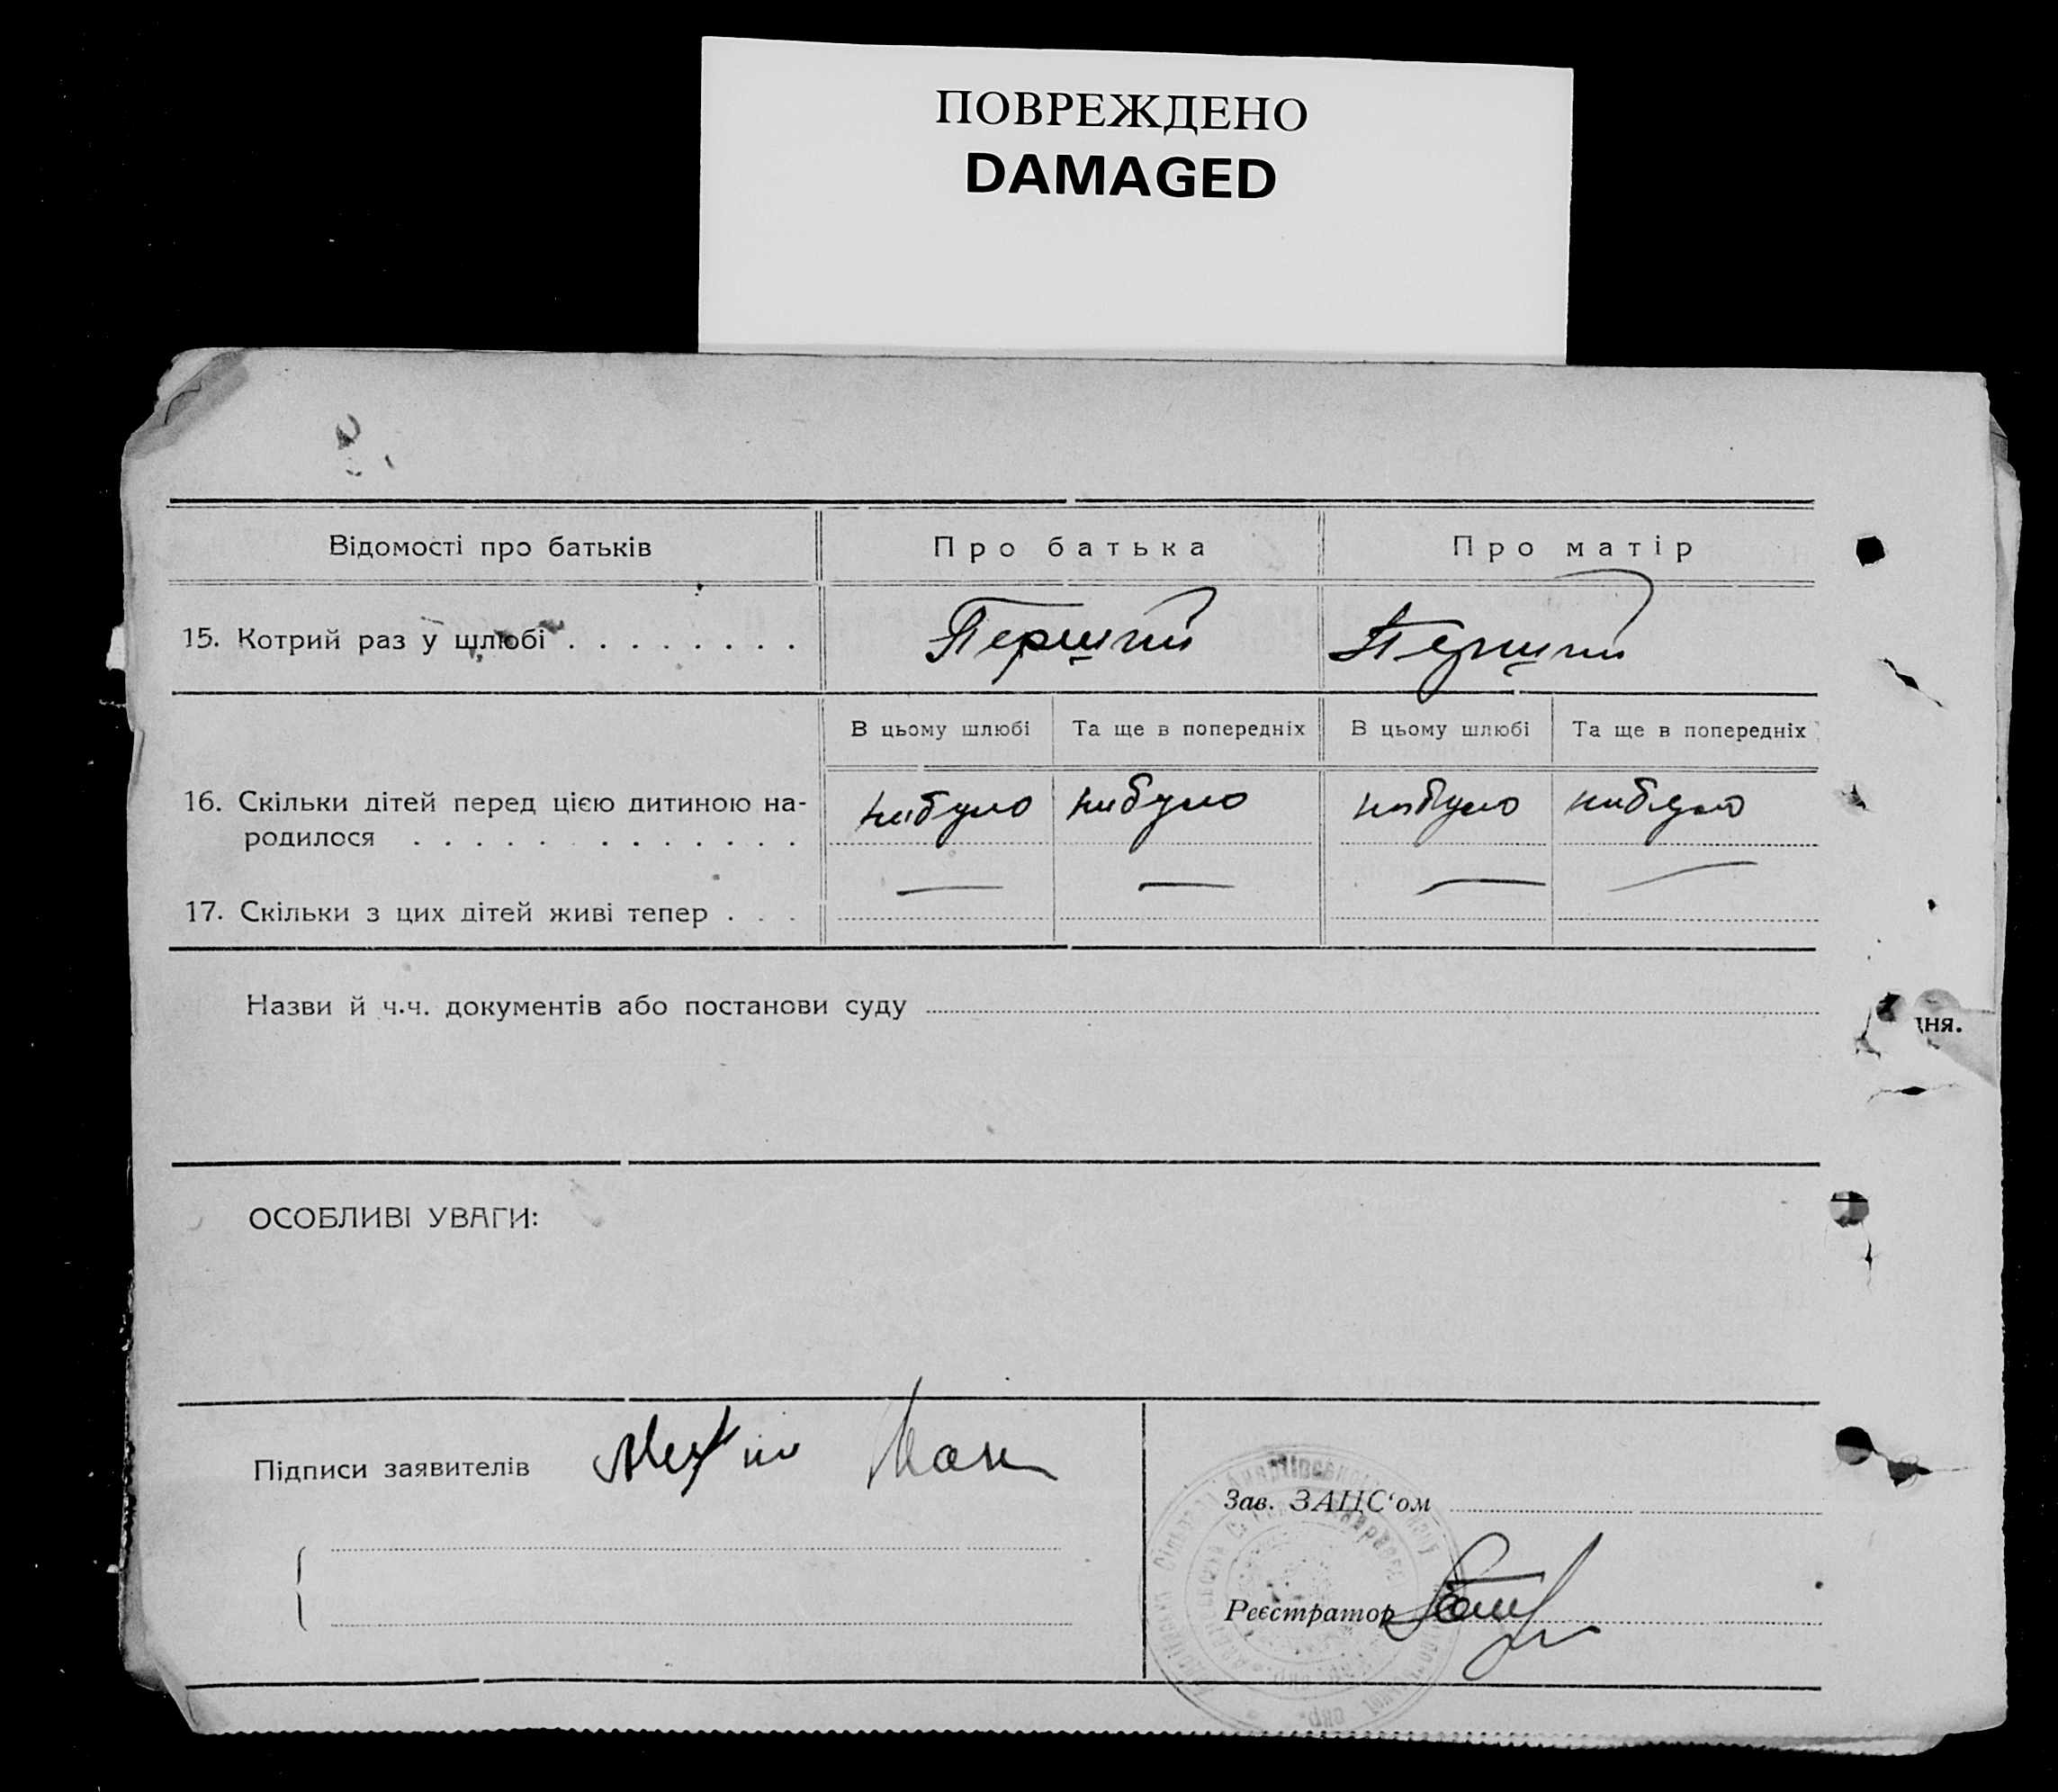 ПОВРЕЖДЕНО
DAMAGED
Відомості про батьків Про батька Про матір
15. Котрий раз у шлюбі . . . . . . . . Перший Перший
В цьому шлюбі Та ще в попередніх В цьому шлюбі Та ще в попередніх
16. Скільки дітей перед цією дитиною на-
родилося . . . . . . . . . . . . . небуло небуло небуло небуло
17. Скільки з цих дітей живі тепер . . . — — — —
Назви й ч.ч. документів або постанови суду
дня.
ОСОБЛИВІ УВАГИ:
Підписи заявителів
Зав. ЗАЦС‘ом
Реєстратор